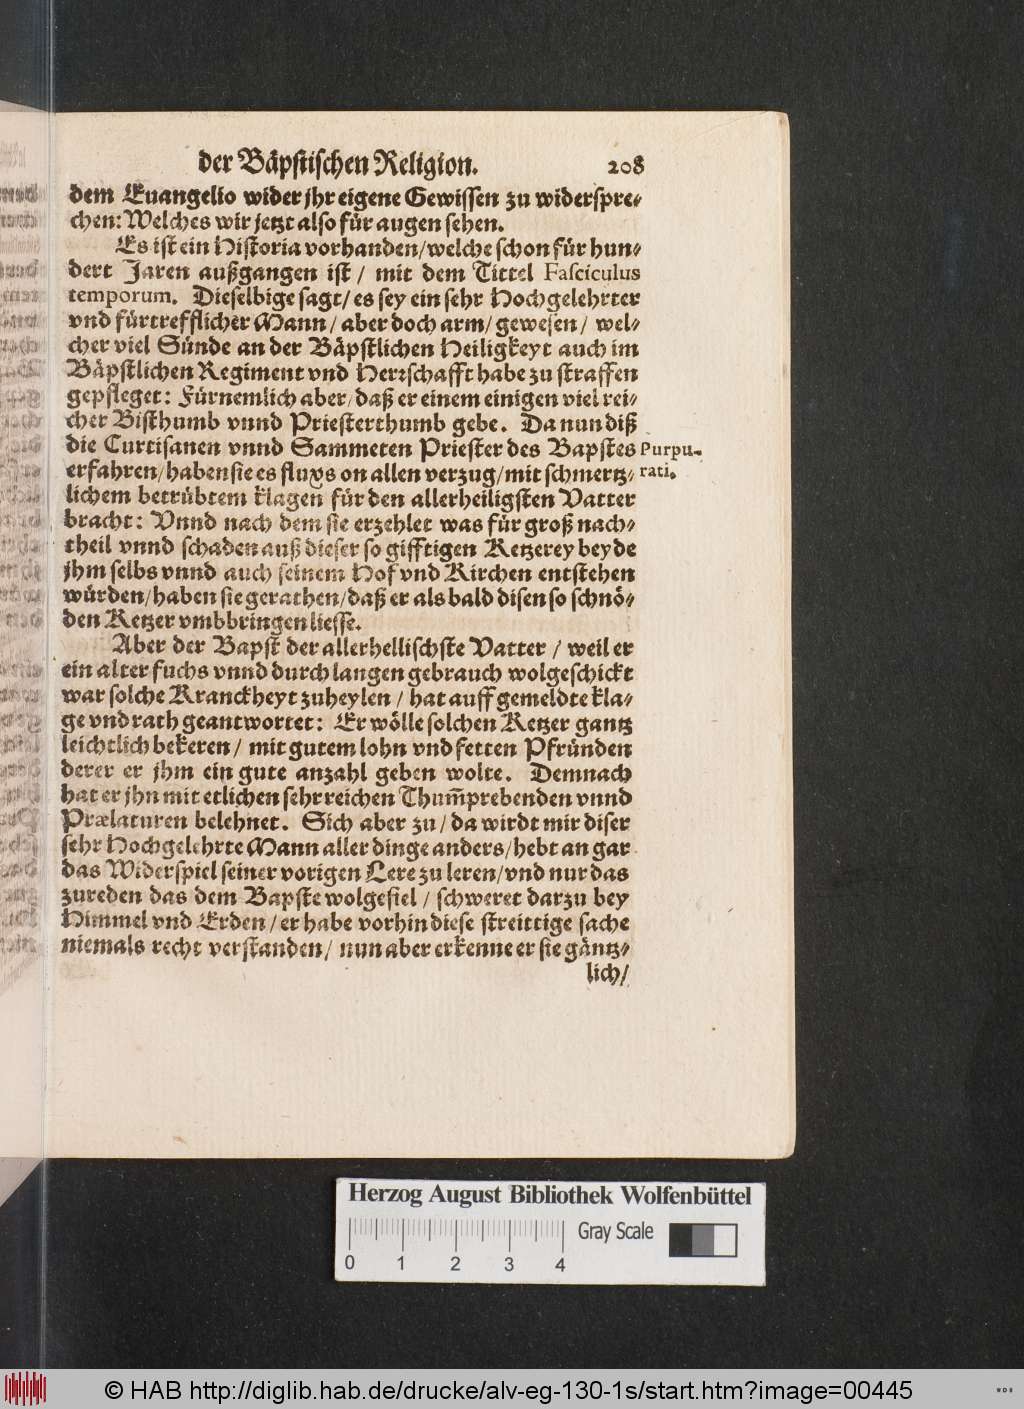 der Bäpstischen Religion. 208
dem Euangelio wider jhr eigene Gewissen zu widerspre-
chen: Welches wir jetzt also für augen sehen.
Es ist ein Historia vorhanden/welche schon für hun-
dert Jaren außgangen ist / mit dem Tittel Fasciculus
temporum. Dieselbige sagt/ es sey ein sehr Hochgelehrter
vnd fürtrefflicher Mann / aber doch arm/ gewesen / wel-
cher viel Sünde an der Bäpstlichen Heiligkeyt auch im
Bäpstlichen Regiment vnd Herrschafft habe zu straffen
gepfleget: Fürnemlich aber/ daß er einem einigen viel rei-
cher Bisthumb vnnd Priesterthumb gebe. Da nun diß
die Curtisanen vnnd Sammeten Priester des Bapstes
Purpu-
erfahren/ haben sie es fluxs on allen verzug/ mit schmertz-
rati.
lichem betrübtem klagen für den allerheiligsten Vatter
bracht: Vnnd nach dem sie erzehlet was für groß nach-
theil vnnd schaden auß dieser so gifftigen Ketzerey beyde
jhm selbs vnnd auch seinem Hof vnd Kirchen entstehen
würden/ haben sie gerathen/ daß er als bald disen so schnö-
den Ketzer vmbbringen liesse.
Aber der Bapst der allerhellischste Vatter / weil er
ein alter fuchs vnnd durch langen gebrauch wolgeschickt
war solche Kranckheyt zuheylen / hat auff gemeldte kla-
ge vnd rath geantwortet: Er wölle solchen Ketzer gantz
leichtlich bekeren / mit gutem lohn vnd fetten Pfründen
derer er jhm ein gute anzahl geben wolte. Demnach
hat er jhn mit etlichen sehr reichen Thum̃prebenden vnnd
Prælaturen belehnet. Sich aber zu / da wirdt mir diser
sehr Hochgelehrte Mann aller dinge anders/ hebt an gar
das Widerspiel seiner vorigen Lere zu leren/ vnd nur das
zureden das dem Bapste wolgefiel / schweret darzu bey
Himmel vnd Erden / er habe vorhin diese streittige sache
niemals recht verstanden / nun aber erkenne er sie gäntz-
lich/
Herzog August Bibliothek Wolfenbüttel
Gray Scale
0 1 2 3 4
© HAB http://diglib.hab.de/drucke/alv-eg-130-1s/start.htm?image=00445